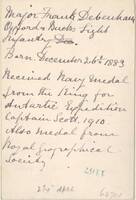 Major Frank Debenham
Oxford & Bucks Light
Infantry
Born December 26th 1883
Received Navy medal
from the King for
Antarctic Expedition
Captain Scott. 1910.
Also medal from
Royal Geographical
Society